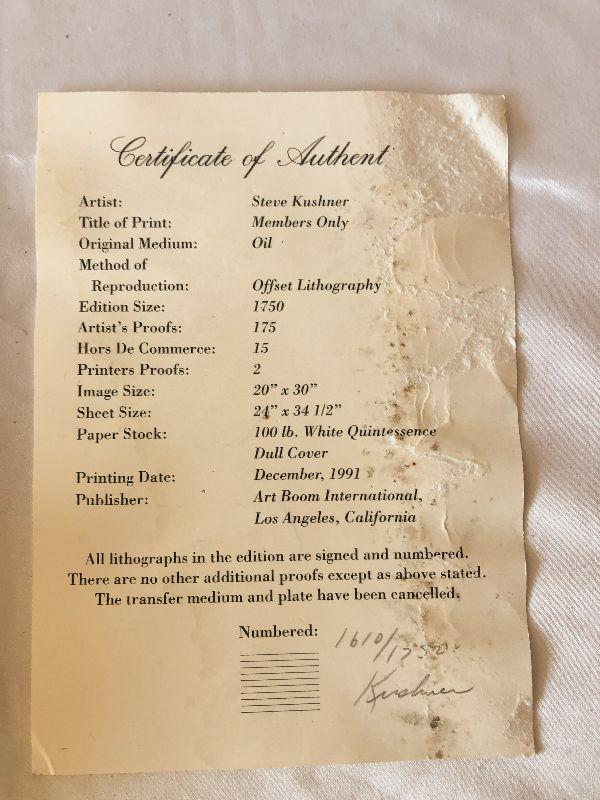 Certificate of Authent
Artist: Steve Kushner
Title of Print: Members Only
Original Medium: Oil
Method of
Reproduction: Offset Lithography
Edition Size: 1750
Artist's Proofs: 175
Hors De Commerce: 15
Printers Proofs: 2
Image Size: 20” x 30”
Sheet Size: 24” x 34 1/2”
Paper Stock: 100 lb. White Quintessence
Dull Cover
Printing Date: December, 1991
Publisher: Art Boom International,
Los Angeles, California
All lithographs in the edition are signed and numbered.
There are no other additional proofs except as above stated.
The transfer medium and plate have been cancelled.
Numbered: 1610/1750
Kushner